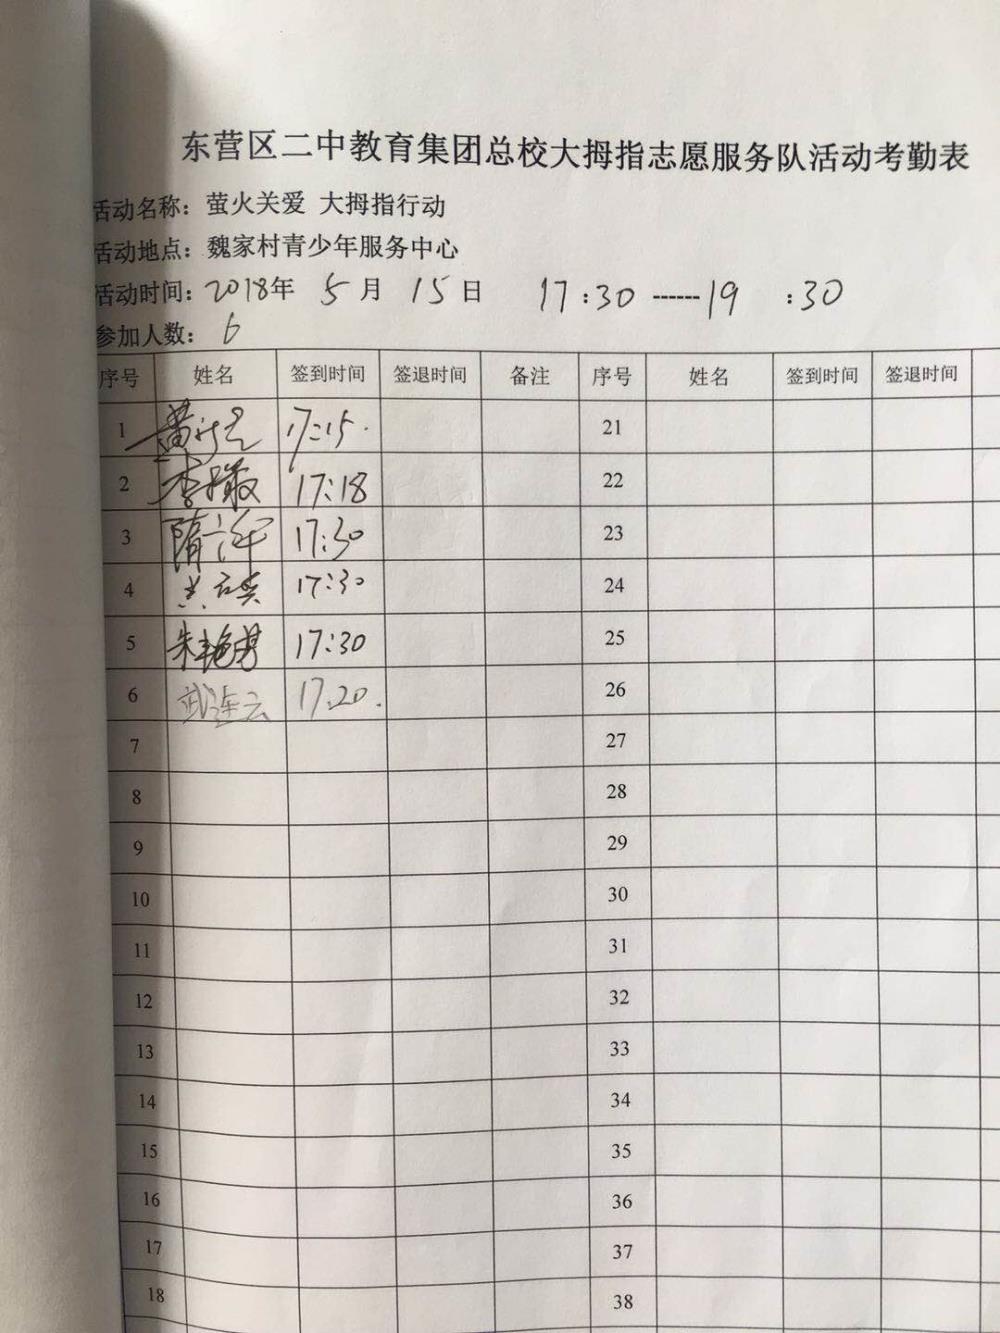 东营区二中教育集团总校大拇指志愿服务队活动考勤表
活动名称：萤火关爱 大拇指行动
活动地点：魏家村青少年服务中心
活动时间：2018年 5 月 15 日 17:30 ------19 :30
参加人数：6
序号 姓名 签到时间 签退时间 备注 序号 姓名 签到时间 签退时间
1 17:15. 21
2 17:18 22
3 17:30 23
4 17:30 24
5 朱艳芳 17:30 25
6 武连云 17.20. 26
7 27
8 28
9 29
10 30
11 31
12 32
13 33
14 34
15 35
16 36
17 37
18 38